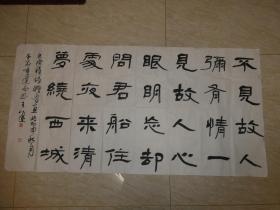 不見故人
彌有情一
見故人心
眼明忘却
問君船住
處夜来清
夢繞西城